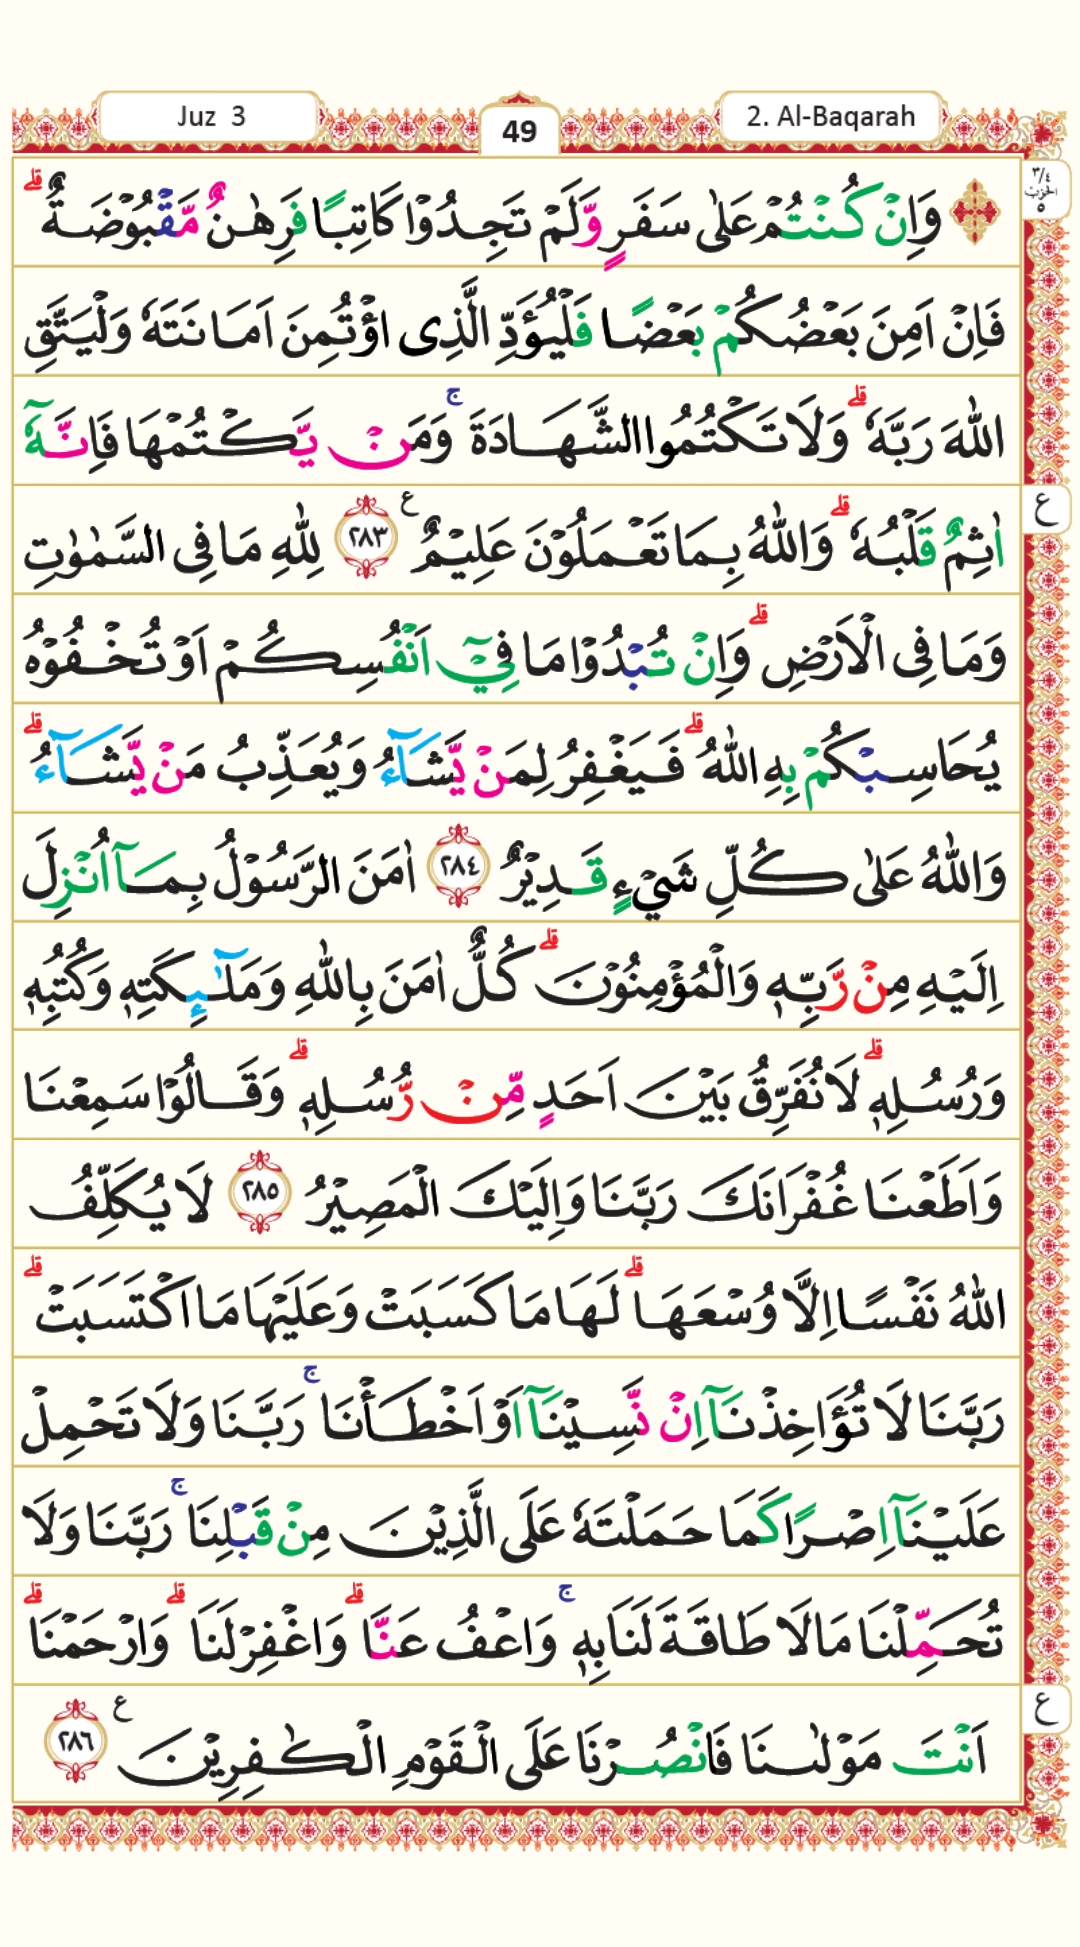 Juz 3
49
2. Al-Baqarah
٣/٤ الحزب ٥
وَاِنْ كُنْتُمْ عَلٰى سَفَرٍ وَّلَمْ تَجِدُوْا كَاتِبًا فَرِهٰنٌ مَّقْبُوْضَةٌ ۗ
فَاِنْ اَمِنَ بَعْضُكُمْ بَعْضًا فَلْيُؤَدِّ الَّذِى اؤْتُمِنَ اَمَانَتَهٗ وَلْيَتَّقِ
اللّٰهَ رَبَّهٗ ۗ وَلَا تَكْتُمُوا الشَّهَادَةَ ۚ وَمَنْ يَّكْتُمْهَا فَاِنَّهٗٓ
اٰثِمٌ قَلْبُهٗ ۗ وَاللّٰهُ بِمَا تَعْمَلُوْنَ عَلِيْمٌ ࣖ ٢٨٣ لِلّٰهِ مَا فِى السَّمٰوٰتِ
ع
وَمَا فِى الْاَرْضِ ۗ وَاِنْ تُبْدُوْا مَا فِيْٓ اَنْفُسِكُمْ اَوْ تُخْفُوْهُ
يُحَاسِبْكُمْ بِهِ اللّٰهُ ۗ فَيَغْفِرُ لِمَنْ يَّشَاۤءُ وَيُعَذِّبُ مَنْ يَّشَاۤءُ ۗ
وَاللّٰهُ عَلٰى كُلِّ شَيْءٍ قَدِيْرٌ ٢٨٤ اٰمَنَ الرَّسُوْلُ بِمَآ اُنْزِلَ
اِلَيْهِ مِنْ رَّبِّهٖ وَالْمُؤْمِنُوْنَ ۗ كُلٌّ اٰمَنَ بِاللّٰهِ وَمَلٰۤىِٕكَتِهٖ وَكُتُبِهٖ
وَرُسُلِهٖ ۗ لَا نُفَرِّقُ بَيْنَ اَحَدٍ مِّنْ رُّسُلِهٖ ۗ وَقَالُوْا سَمِعْنَا
وَاَطَعْنَا غُفْرَانَكَ رَبَّنَا وَاِلَيْكَ الْمَصِيْرُ ٢٨٥ لَا يُكَلِّفُ
اللّٰهُ نَفْسًا اِلَّا وُسْعَهَا ۗ لَهَا مَا كَسَبَتْ وَعَلَيْهَا مَا اكْتَسَبَتْ ۗ
رَبَّنَا لَا تُؤَاخِذْنَآ اِنْ نَّسِيْنَآ اَوْ اَخْطَأْنَا ۚ رَبَّنَا وَلَا تَحْمِلْ
عَلَيْنَآ اِصْرًا كَمَا حَمَلْتَهٗ عَلَى الَّذِيْنَ مِنْ قَبْلِنَا ۚ رَبَّنَا وَلَا
تُحَمِّلْنَا مَا لَا طَاقَةَ لَنَا بِهٖ ۚ وَاعْفُ عَنَّا ۗ وَاغْفِرْ لَنَا ۗ وَارْحَمْنَا ۗ
اَنْتَ مَوْلٰىنَا فَانْصُرْنَا عَلَى الْقَوْمِ الْكٰفِرِيْنَ ࣖ ٢٨٦
ع